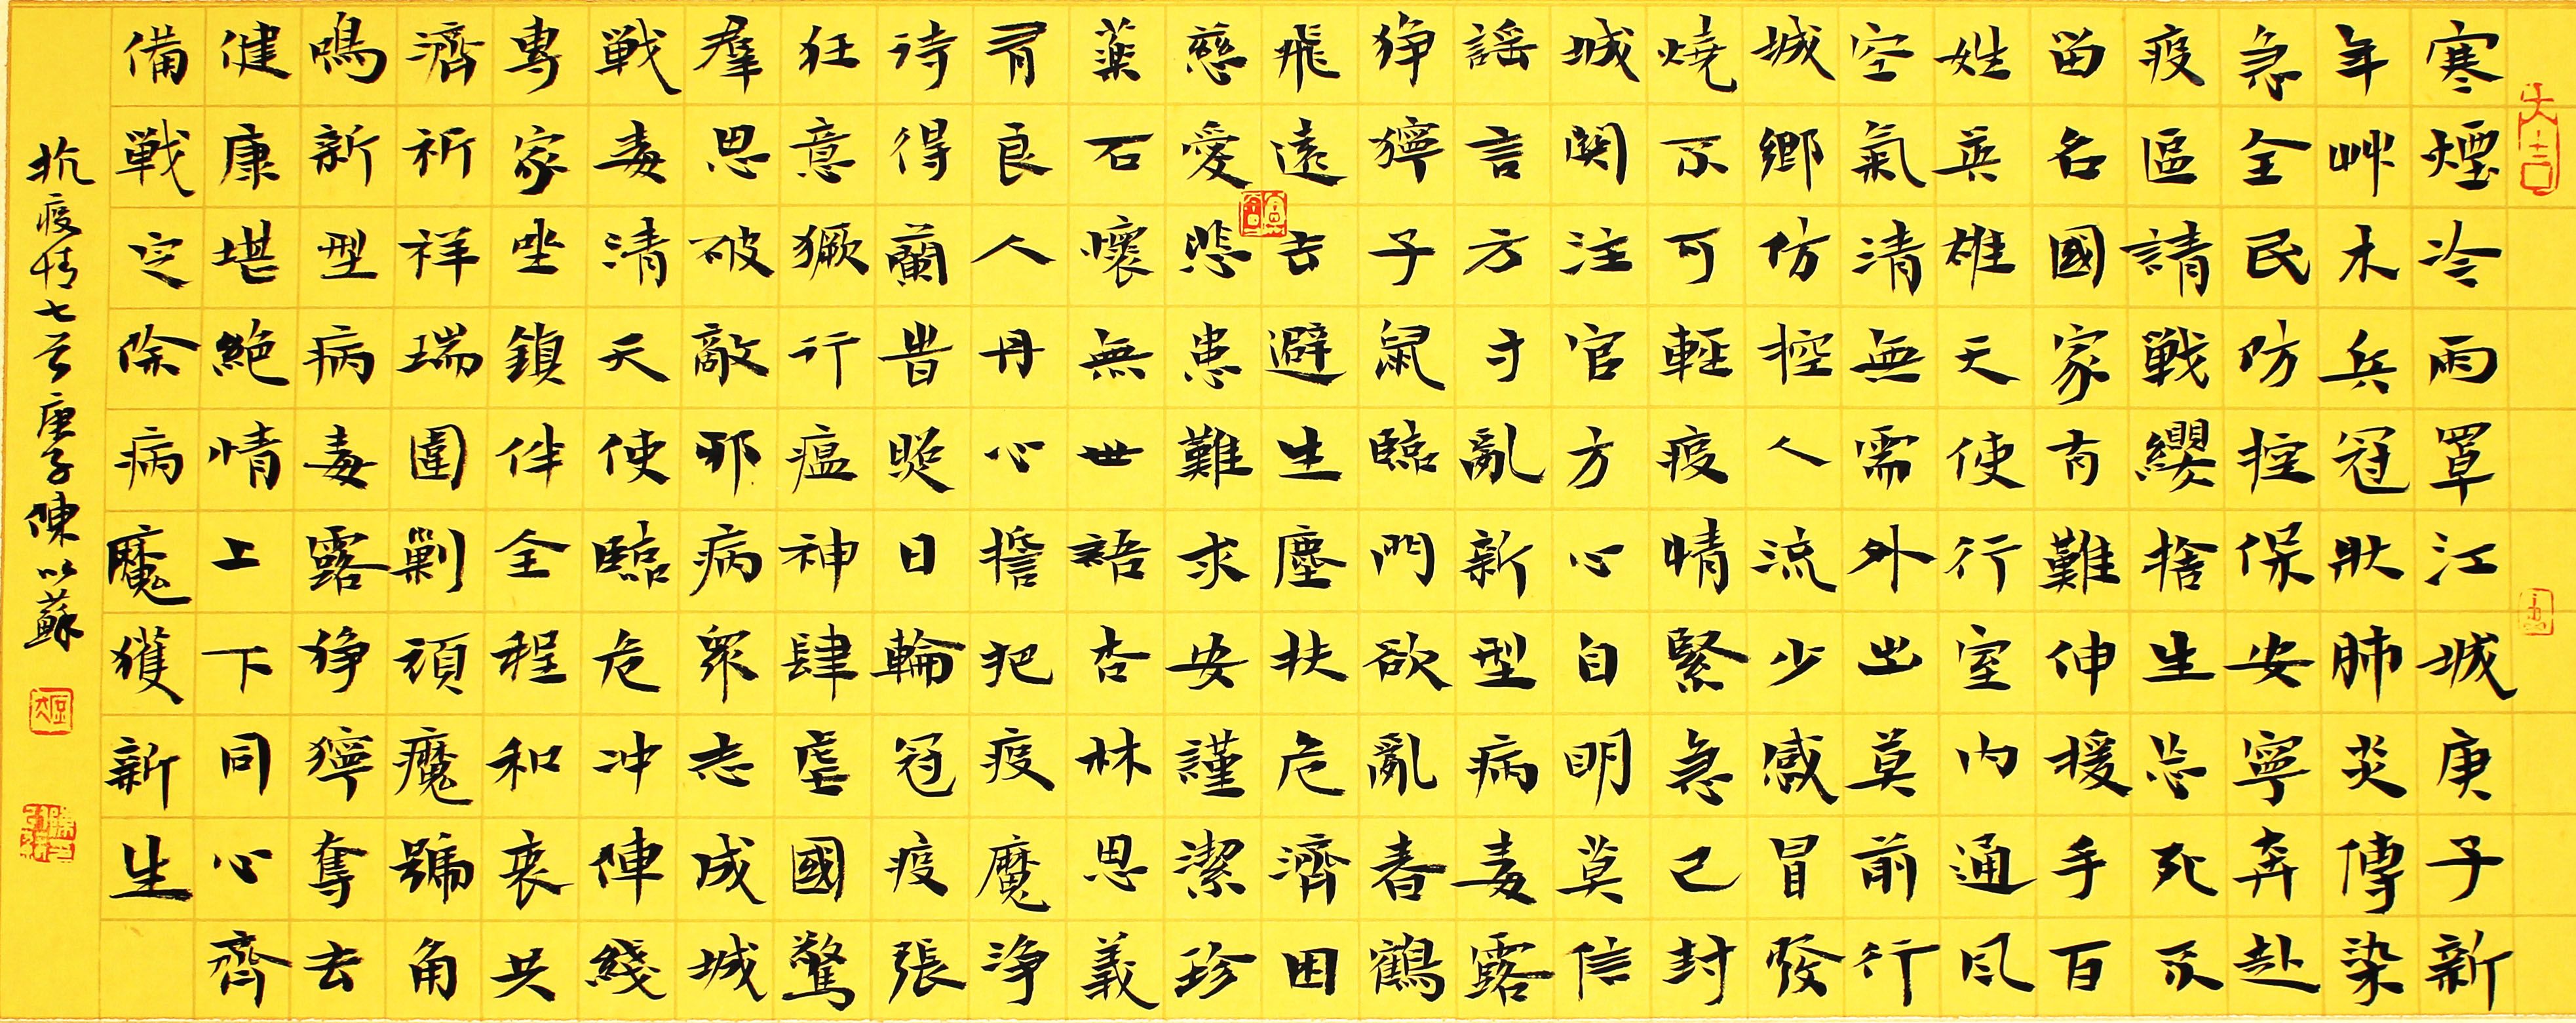 寒煙冷雨罩江城庚子新
年艸木兵冠狀肺炎傳染
急全民防控保安寧奔赴
疫區請戦纓捨生忘死不
留名國家有難伸援手百
姓英雄天使行室內通風
空氣清無需外出莫前行
城鄉仿控人流少感冒發
燒不可輕疫情緊急已封
城関注官方心自明莫信
謠言方寸亂新型病毒露
猙獰子鼠臨門欲亂春鶴
飛遠去避生塵扶危濟困
慈愛悲患難求安謹潔珍
藥石懷無世語杏林思義
有良人丹心擔把疫魔淨
詩得蘭昔照日輪冠疫張
狂意獗行瘟神肆虐國驚
羣思破敵邪病眾志成城
戦毒清天使臨危沖陣綫
專家坐鎮伴全程和衷共
濟祈祥瑞圍剿頑魔號角
鳴新型病毒露猙獰奪去
健康堪絕情上下同心齊
備戦定除病魔獲新生
抗疫情七首庚子陳以蘇